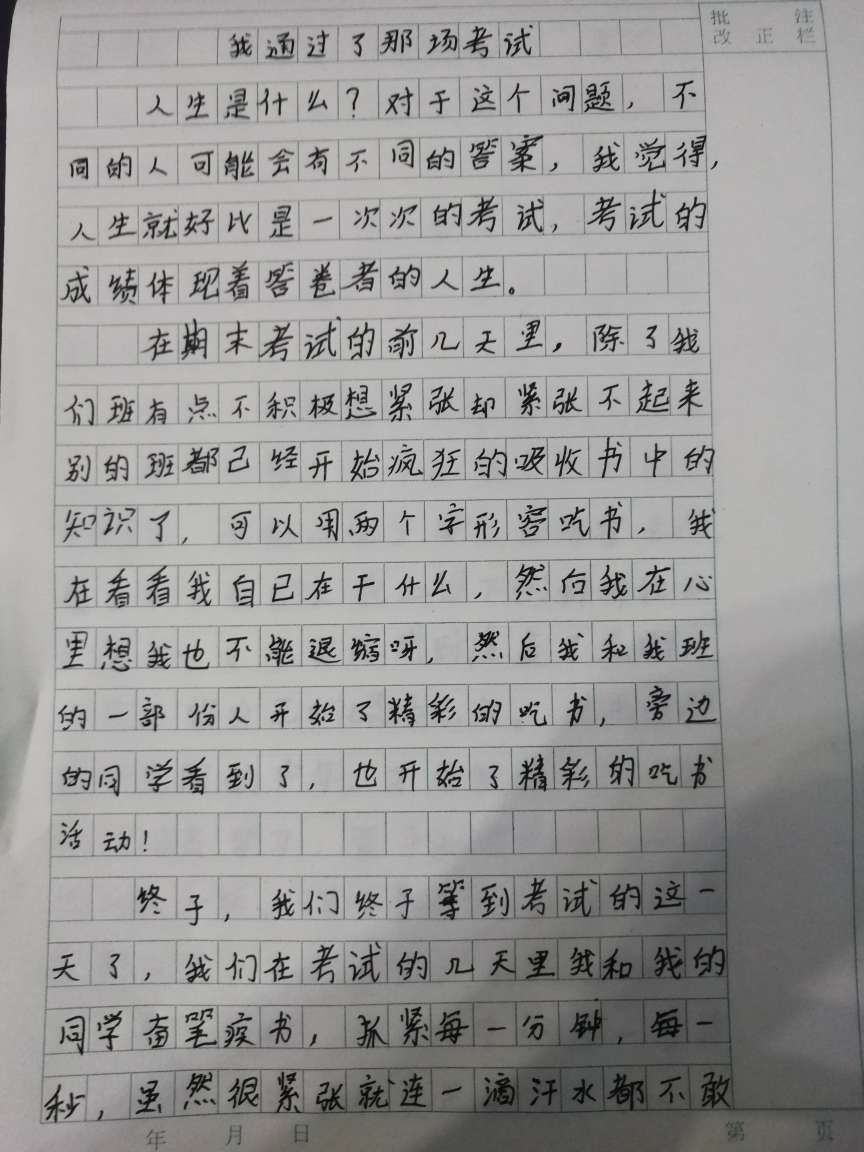 批 注
改 正 栏
我通过了那场考试
人生是什么？对于这个问题，不
同的人可能会有不同的答案，我觉得，
人生就好比是一次次的考试，考试的
成绩体现着答卷者的人生。
在期末考试的前几天里，除了我
们班有点不积极想紧张却紧张不起来
别的班都己经开始疯狂的吸收书中的
知识了，可以用两个字形容吃书，我
在看看我自己在干什么，然后我在心
里想我也不能退缩呀，然后我和我班
的一部份人开始了精彩的吃书，旁边
的同学看到了，也开始了精彩的吃书
活动！
终于，我们终于等到考试的这一
天了，我们在考试的几天里我和我的
同学奋笔疾书，抓紧每一分钟，每一
秒，虽然很紧张就连一滴汗水都不敢
年 月 日 第 页